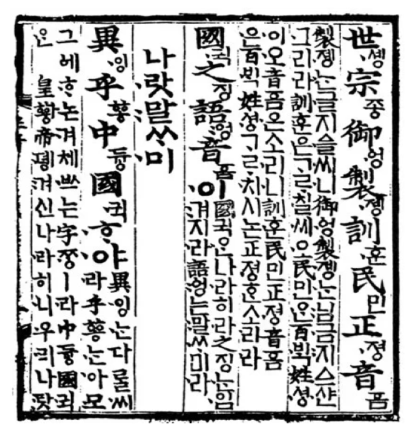 世솅宗조ᇰ御ᅌᅥᆼ製졩訓훈民민正져ᇰ音ᅙᅳᆷ
製졩ᄂᆞᆫ글지ᅀᅳᆯ씨니御ᅌᅥᆼ製졩ᄂᆞᆫ님금지ᅀᅳ샨
그리라訓훈은ᄀᆞᄅᆞ칠씨오民민ᄋᆞᆫ百ᄇᆡᆨ姓셔ᇰ
이오音ᅙᅳᆷ은소리니訓훈民민正져ᇰ音ᅙᅳᆷ
은百ᄇᆡᆨ姓셔ᇰᄀᆞᄅᆞ치시논正져ᇰᄒᆞᆫ소리라
國귁之징語ᅌᅥᆼ音ᅙᅳᆷ이
國귁ᄋᆞᆫ나라히라之징ᄂᆞᆫ입
겨지라語ᅌᅥᆼᄂᆞᆫ말ᄊᆞ미라
나랏말ᄊᆞ미
異잉乎ᅘᅩᆼ中듀ᇰ國귁ᄒᆞ야
異잉ᄂᆞᆫ다ᄅᆞᆯ씨
라乎ᅘᅩᆼᄂᆞᆫ아모
그ᅌᅦᄒᆞ논겨체ᄡᅳᄂᆞᆫ字ᄍᆞᆼㅣ라中듀ᇰ國귁
ᄋᆞᆫ皇ᅘᅪᇰ帝뎽겨신나라히니우리나랏